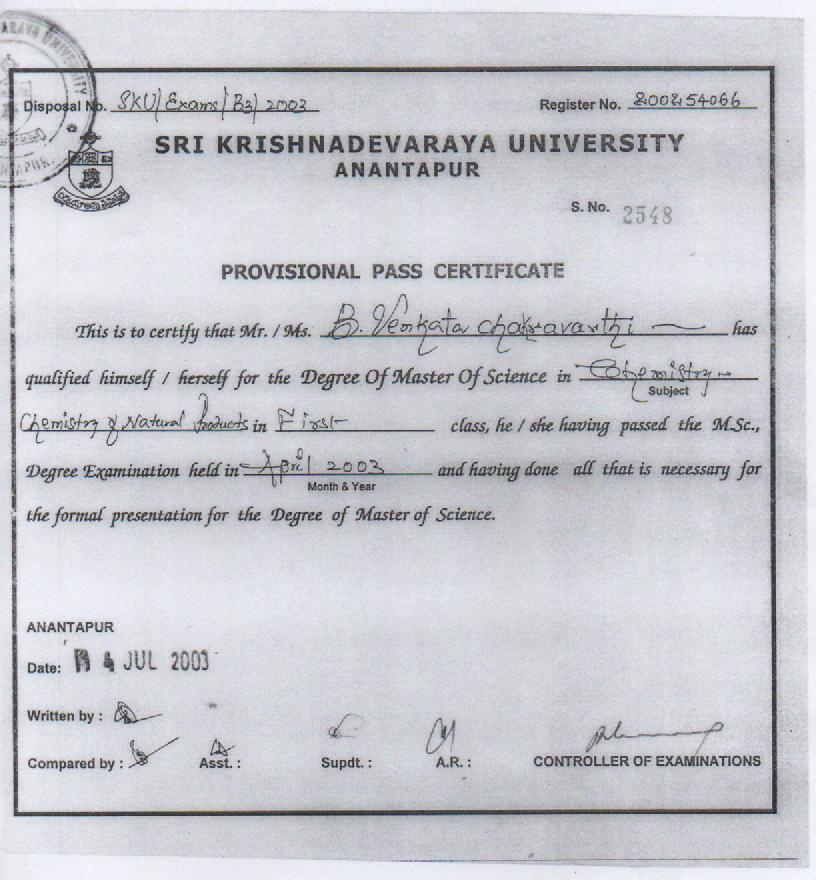 ARAYA UNIVERSITY
Disposal No. SKU/Exams/B3/2003 Register No. 200254066
SRI KRISHNADEVARAYA UNIVERSITY
ANANTAPUR
S. No. 2548
PROVISIONAL PASS CERTIFICATE
This is to certify that Mr. / Ms. B. Venkata chakravarthi has
qualified himself / herself for the Degree Of Master Of Science in Chemistry
Subject
Chemistry of Natural Products in First class, he / she having passed the M.Sc.,
Degree Examination held in April 2003 and having done all that is necessary for
Month & Year
the formal presentation for the Degree of Master of Science.
ANANTAPUR
Date: 4 JUL 2003
Written by :
Compared by : Asst. : Supdt. : A.R. : CONTROLLER OF EXAMINATIONS